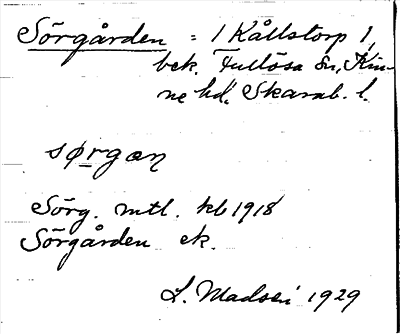 Sörgården = 1 Kållstorp 1,
bek. Fullösa sn, Kin-
ne hd. Skarab. l.
sørgæn
Sörg. mtl. kb 1918
Sörgården ek.
L. Madsén 1929